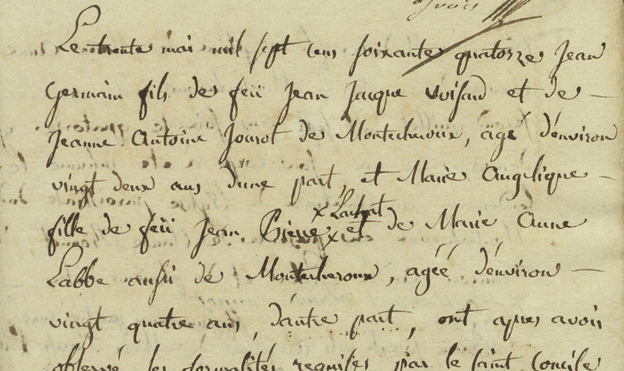 Le trente mai mil sept cens soixante quatorze Jean
Germain fils de feü Jean Jacque Voisard et de —
Jeanne Antoine Jourot de Montecheroüx, agé d'environ
vingt deux ans d'une part, et Marie Angélique —
x Lachat
fille de feü Jean Pierre x et de Marie Anne
Labbe aussi de Montecheroux, agéé d'environ —
vingt quatre ans, d'autre part, ont apres avoir
observé les formalités requises par le saint Concile